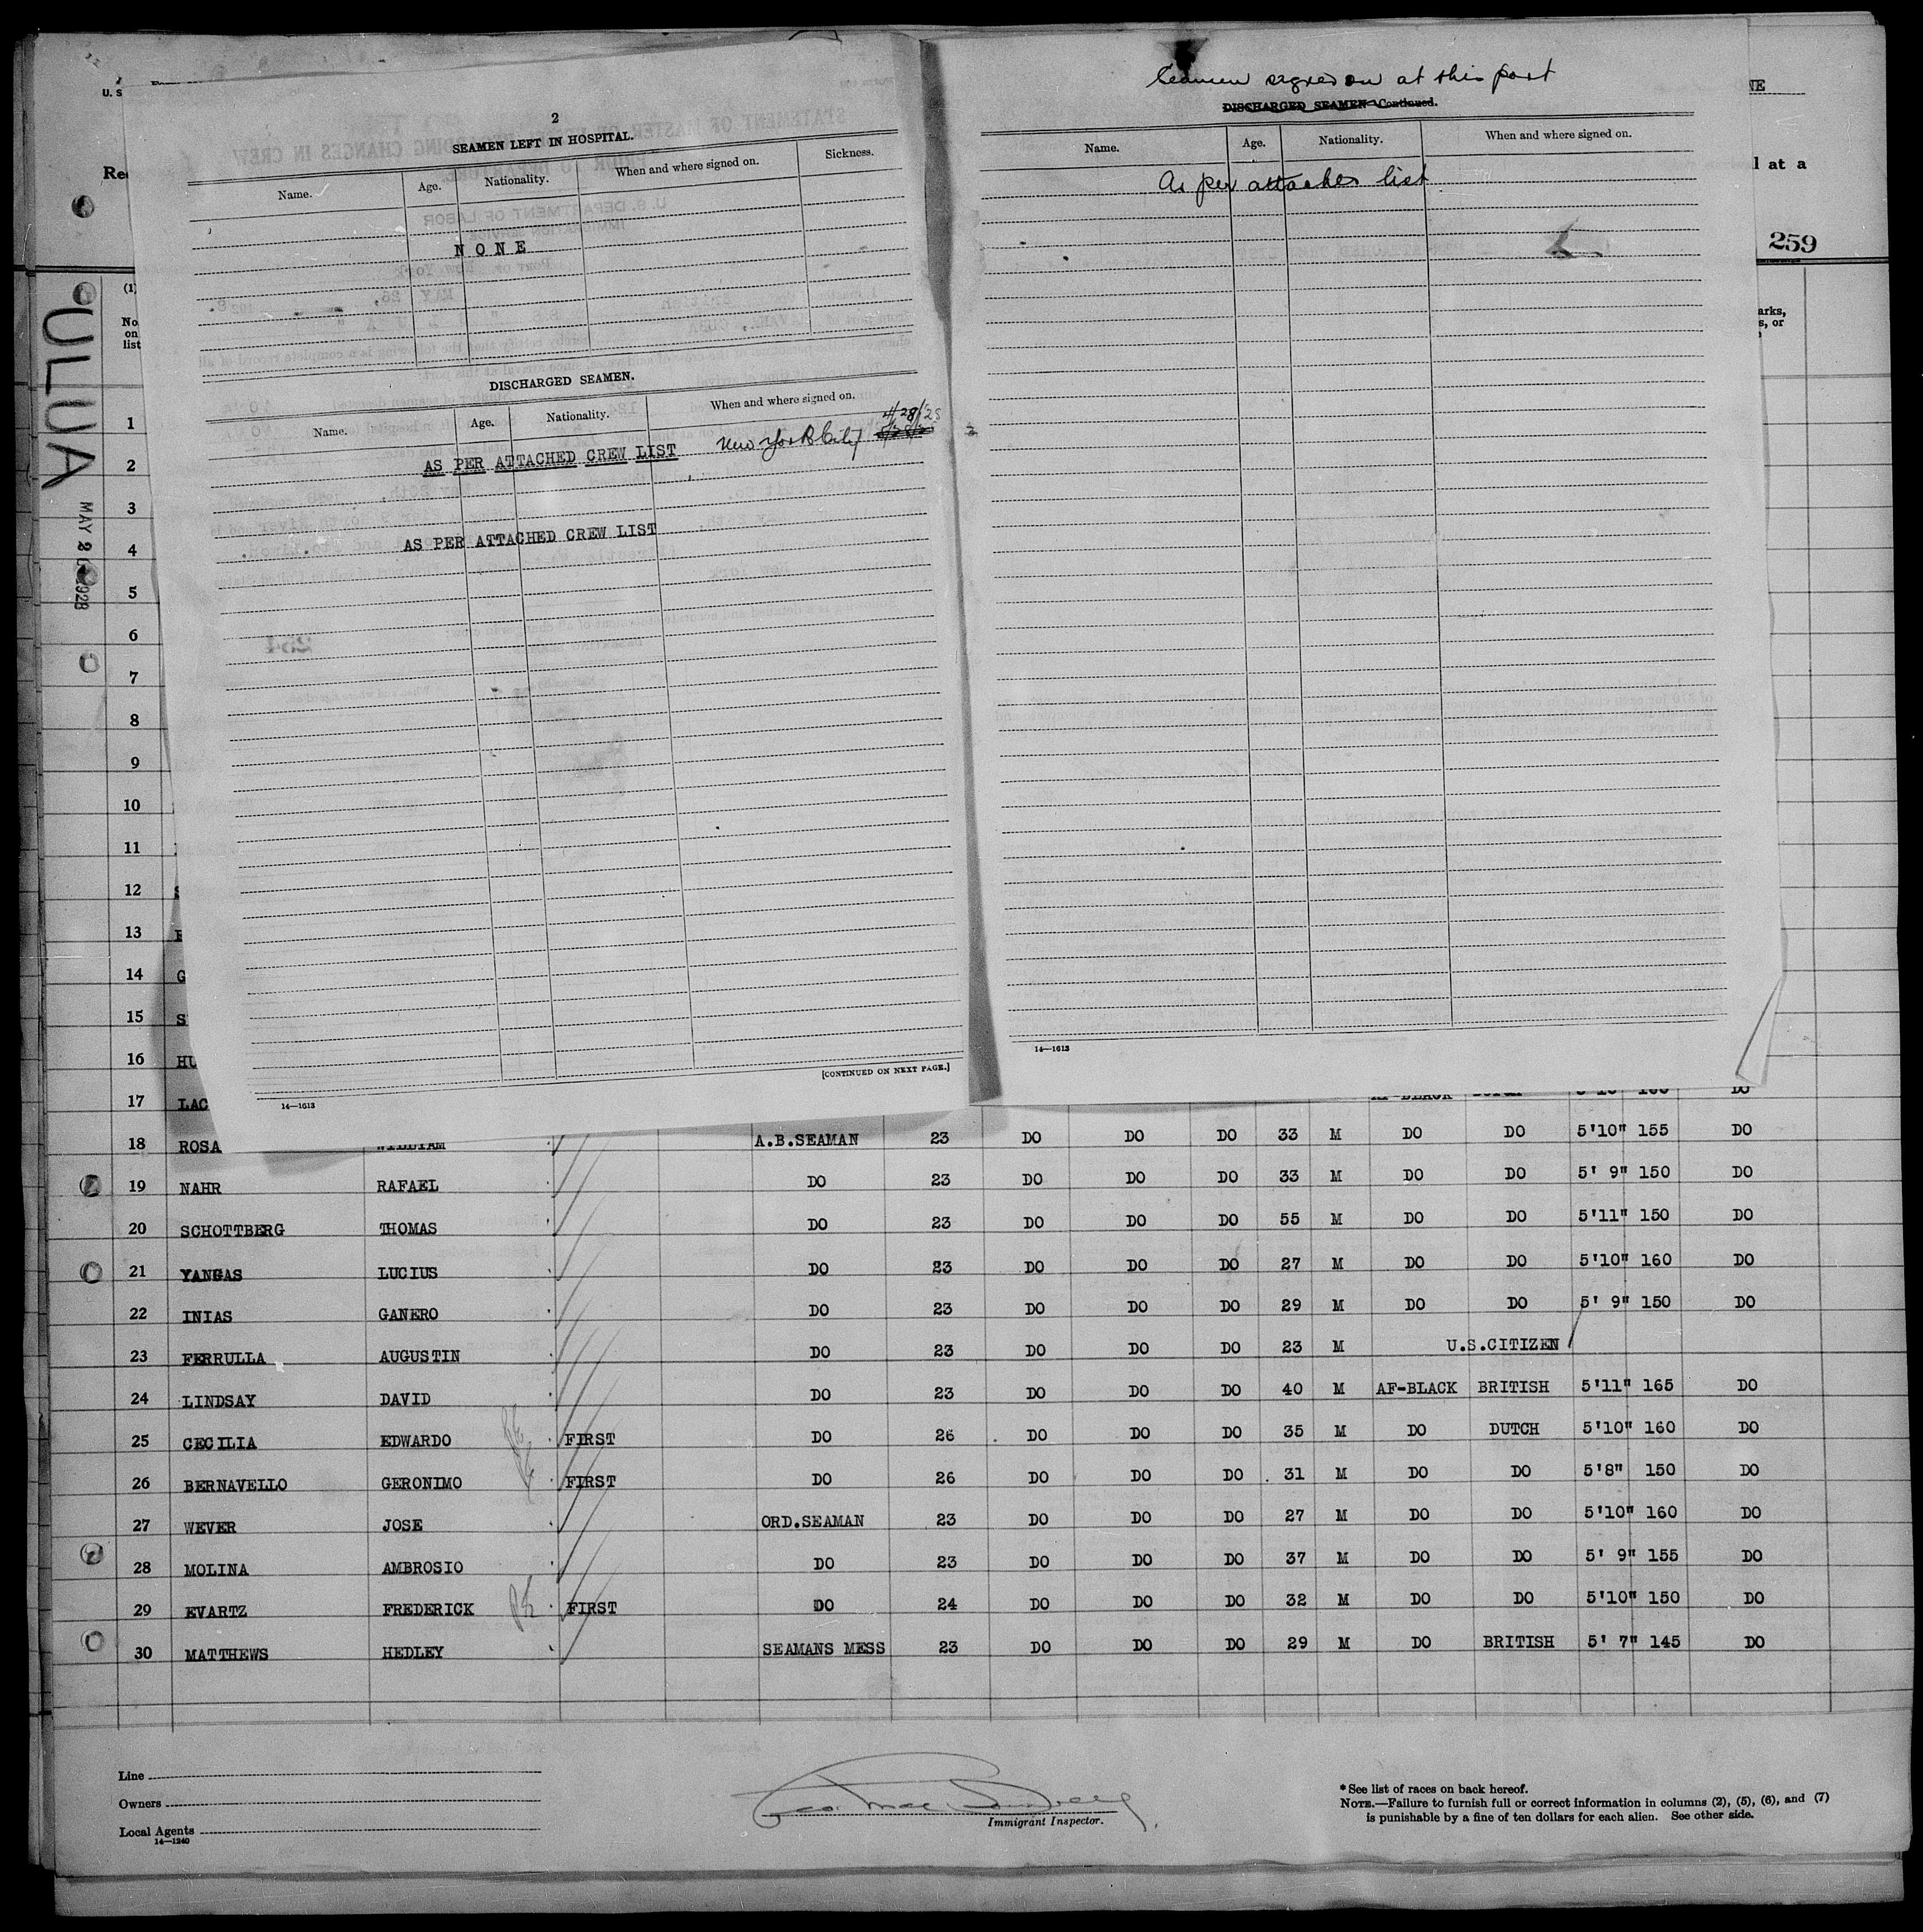 U.S
Rec
2
SEAMEN LEFT IN HOSPITAL.
Name. Age. Nationality. When and where signed on. Sickness.
NONE
DISCHARGED SEAMEN.
Name. Age. Nationality. When and where signed on.
AS PER ATTACHED CREW LIST New York City 4/28/28
AS PER ATTACHED CREW LIST
[CONTINUED ON NEXT PAGE.]
14—1613
Seamen signed on at this port
DISCHARGED SEAMEN—Continued.
Name. Age. Nationality. When and where signed on.
As per attached list
14—1613
NE
l at a
259
arks,
s, or
ULUA
MAY 2 1928
(1)
No.
on
list
1
2
3
4
5
6
7
8
9
10
11
12
13
14 G
15 S
16 HU
17 LAC AF-BLACK DUTCH DO
18 ROSA WILLIAM A.B.SEAMAN 23 DO DO DO 33 M DO DO 5'10" 155 DO
19 NAHR RAFAEL DO 23 DO DO DO 33 M DO DO 5' 9" 150 DO
20 SCHOTTBERG THOMAS DO 23 DO DO DO 55 M DO DO 5'11" 150 DO
21 YANGAS LUCIUS DO 23 DO DO DO 27 M DO DO 5'10" 160 DO
22 INIAS GANERO DO 23 DO DO DO 29 M DO DO 5' 9" 150 DO
23 FERRULLA AUGUSTIN DO 23 DO DO DO 23 M U.S.CITIZEN
24 LINDSAY DAVID DO 23 DO DO DO 40 M AF-BLACK BRITISH 5'11" 165 DO
25 CECILIA EDWARDO FIRST DO 26 DO DO DO 35 M DO DUTCH 5'10" 160 DO
26 BERNAVELLO GERONIMO FIRST DO 26 DO DO DO 31 M DO DO 5'8" 150 DO
27 WEVER JOSE ORD.SEAMAN 23 DO DO DO 27 M DO DO 5'10" 160 DO
28 MOLINA AMBROSIO DO 23 DO DO DO 37 M DO DO 5' 9" 155 DO
29 EVARTZ FREDERICK FIRST DO 24 DO DO DO 32 M DO DO 5'10" 150 DO
30 MATTHEWS HEDLEY SEAMANS MESS 23 DO DO DO 29 M DO BRITISH 5' 7" 145 DO
Line
Owners
Local Agents
14—1240
Immigrant Inspector.
*See list of races on back hereof.
NOTE.—Failure to furnish full or correct information in columns (2), (5), (6), and (7)
is punishable by a fine of ten dollars for each alien. See other side.